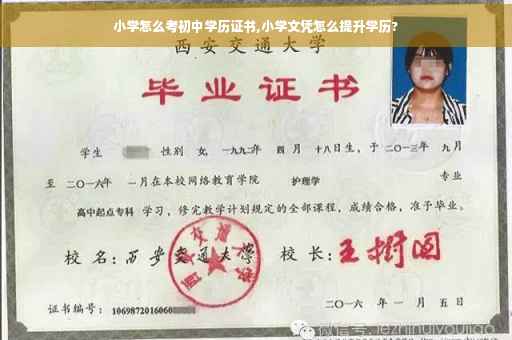 小学怎么考初中学历证书,小学文凭怎么提升学历?
西安交通大学
毕业证书
学生 性别 女, 一九九二年 四月 十八日生, 于 二〇一三年 九月
至 二〇一六年 一月在本校网络教育学院 护理学 专业
高中起点专科 学习, 修完教学计划规定的全部课程, 成绩合格, 准予毕业。
校名: 西安交通大学 校长: 王树国
西安交通大学
证书编号: 1069872016060
二〇一六年 一月 五日
微信号: jezhihuiyoujiao